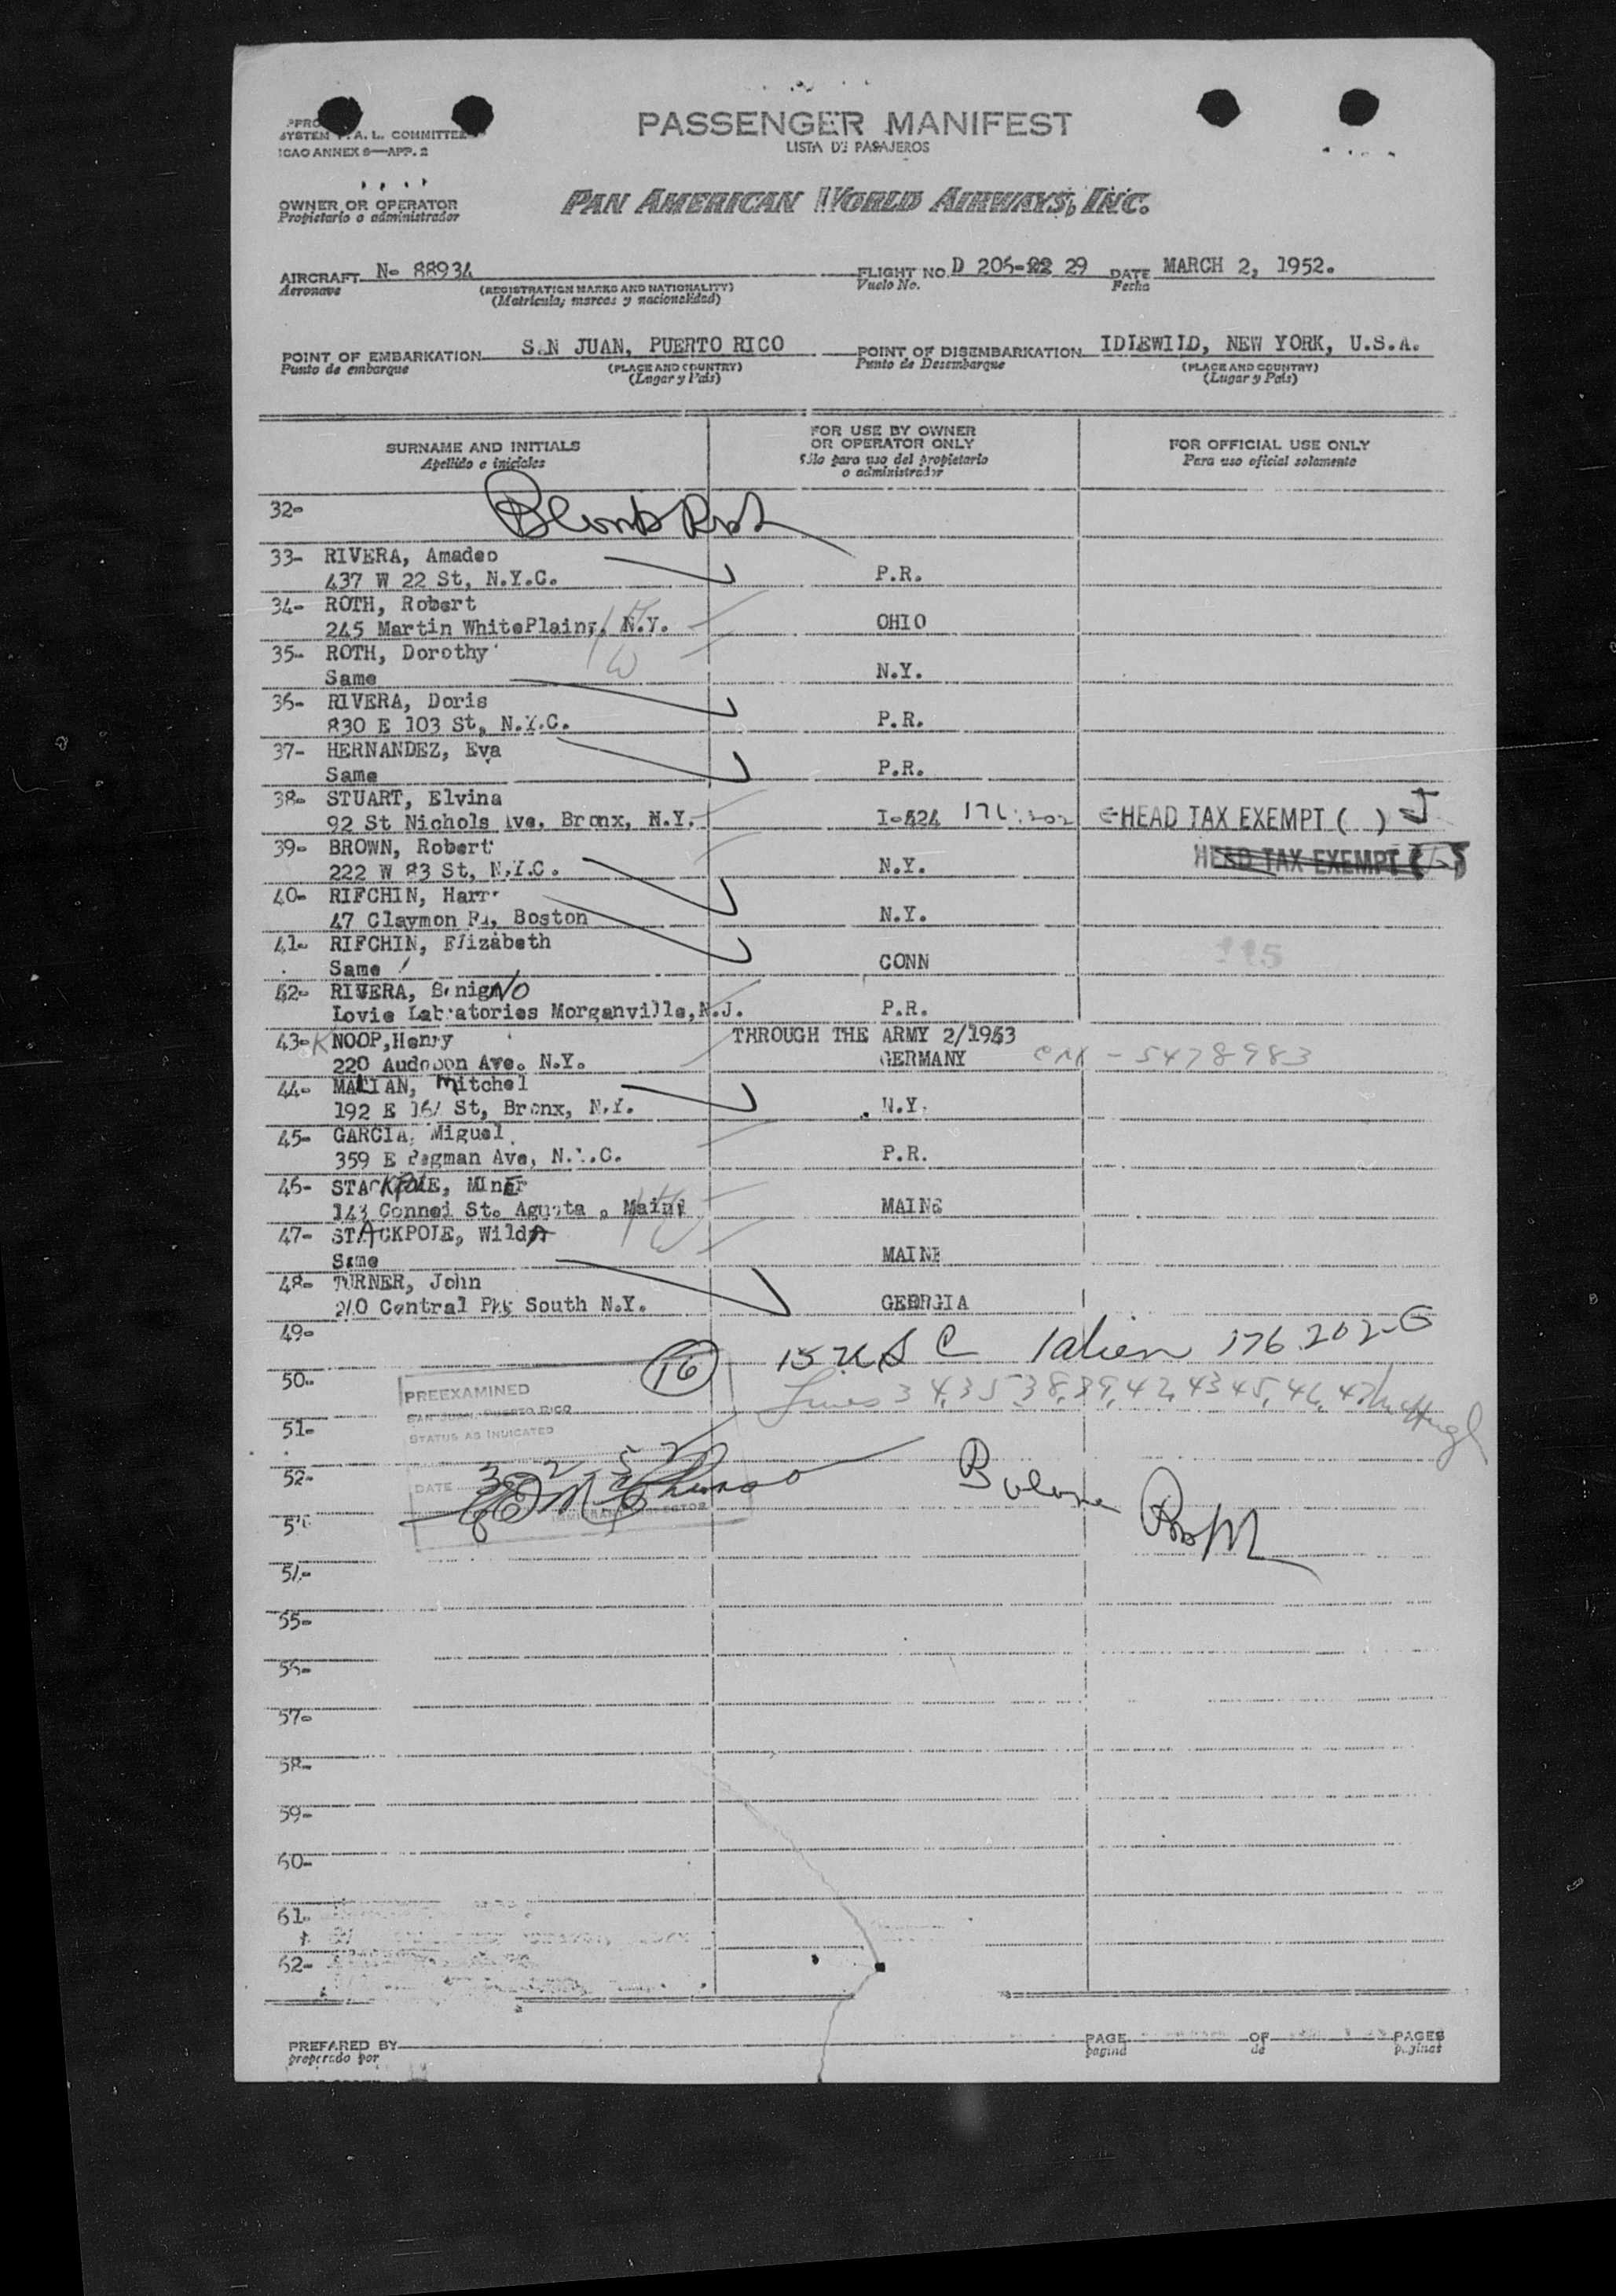 SYSTEM F. A. L. COMMITTEE
ICAO ANNEX 9—APP. 2
PASSENGER MANIFEST
LISTA DE PASAJEROS
OWNER OR OPERATOR
Propietario o administrador
PAN AMERICAN WORLD AIRWAYS, INC.
AIRCRAFT N- 88934 FLIGHT NO. D 206- 29 DATE MARCH 2, 1952.
Aeronave (REGISTRATION MARKS AND NATIONALITY) Vuelo No. Fecha
(Matricula, marcas y nacionalidad)
POINT OF EMBARKATION SAN JUAN, PUERTO RICO POINT OF DISEMBARKATION IDLEWILD, NEW YORK, U.S.A.
Punto de embarque (PLACE AND COUNTRY) Punto de Desembarque (PLACE AND COUNTRY)
(Lugar y Pais) (Lugar y Pais)
SURNAME AND INITIALS
Apellido e iniciales
FOR USE BY OWNER
OR OPERATOR ONLY
Sólo para uso del propietario
o administrador
FOR OFFICIAL USE ONLY
Para uso oficial solamente
32-
33- RIVERA, Amadeo
437 W 22 St, N.Y.C. P.R.
34- ROTH, Robert
245 Martin WhitePlains, N.Y. OHIO
35- ROTH, Dorothy
Same N.Y.
36- RIVERA, Doris
830 E 103 St, N.Y.C. P.R.
37- HERNANDEZ, Eva
Same P.R.
38- STUART, Elvina
92 St Nichols Ave. Bronx, N.Y. I-424 176 202 HEAD TAX EXEMPT ( )
39- BROWN, Robert HEAD TAX EXEMPT
222 W 83 St, N.Y.C. N.Y.
40- RIFCHIN, Harry
47 Claymon Rd, Boston N.Y.
41- RIFCHIN, Elizabeth
Same CONN
42- RIVERA, BenigNO
Lovie Labratories Morganville, N.J. P.R.
43- KNOOP, Henry THROUGH THE ARMY 2/1953
220 Audobon Ave. N.Y. GERMANY - 5478983
44- MALIAN, Mitchel
192 E 164 St, Bronx, N.Y. N.Y.
45- GARCIA, Miguel
359 E Ave, N.Y.C. P.R.
46- STACKPOLE, MINEr
143 Connei St. Agusta, Maine MAINE
47- STACKPOLE, WildA
Same MAINE
48- TURNER, John
240 Central Pk, South N.Y. GEORGIA
49-
16 15 USC 1 alien 176 202-G
50-
Lines 34, 35, 38, 39, 42, 43 45, 46, 47
PREEXAMINED
SAN JUAN, PUERTO RICO
STATUS AS INDICATED
51-
52-
DATE 3 2 52
IMMIGRANT INSPECTOR
53-
54-
55-
56-
57-
58-
59-
60-
61-
62-
PREPARED BY PAGE OF PAGES
preparado por pagina de paginas